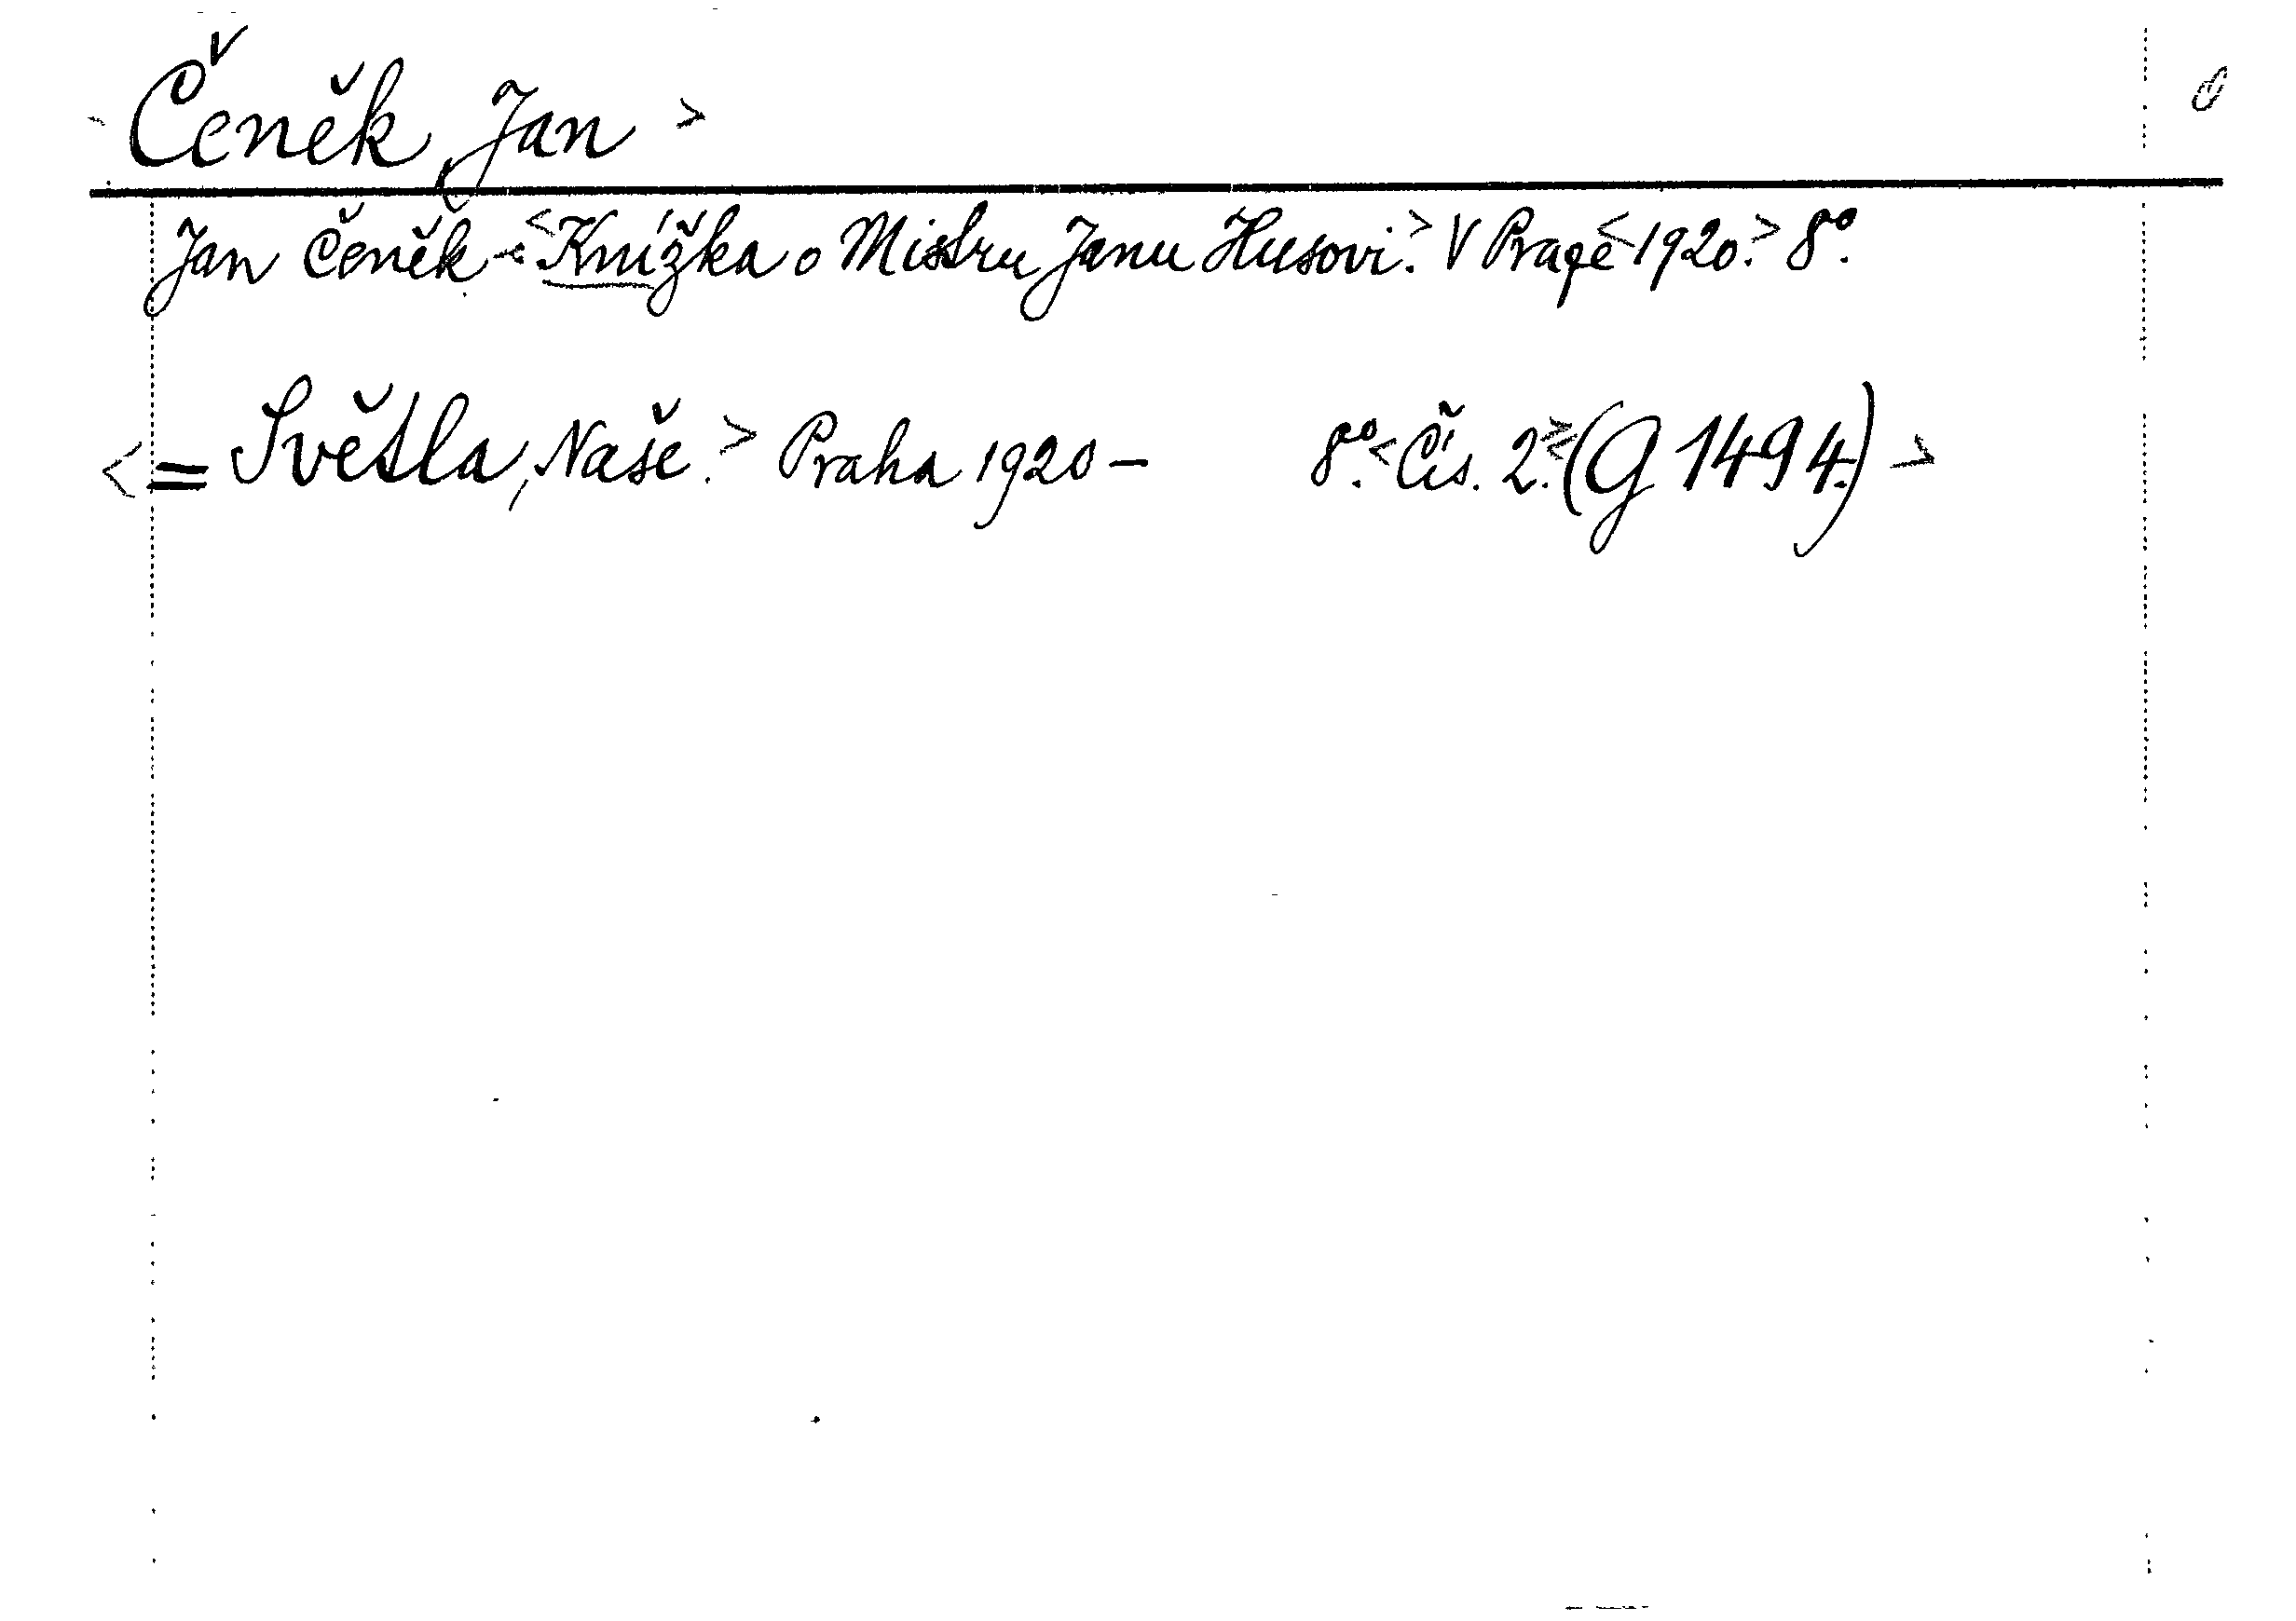 Čeněk, Jan >
Jan Čeněk: <Knížka o Mistru Janu Husovi.> V Praze <1920.> 8°.
<= Světla, Naše.> Praha 1920 – 8°. <Čís. 2.> (G 1494.) >